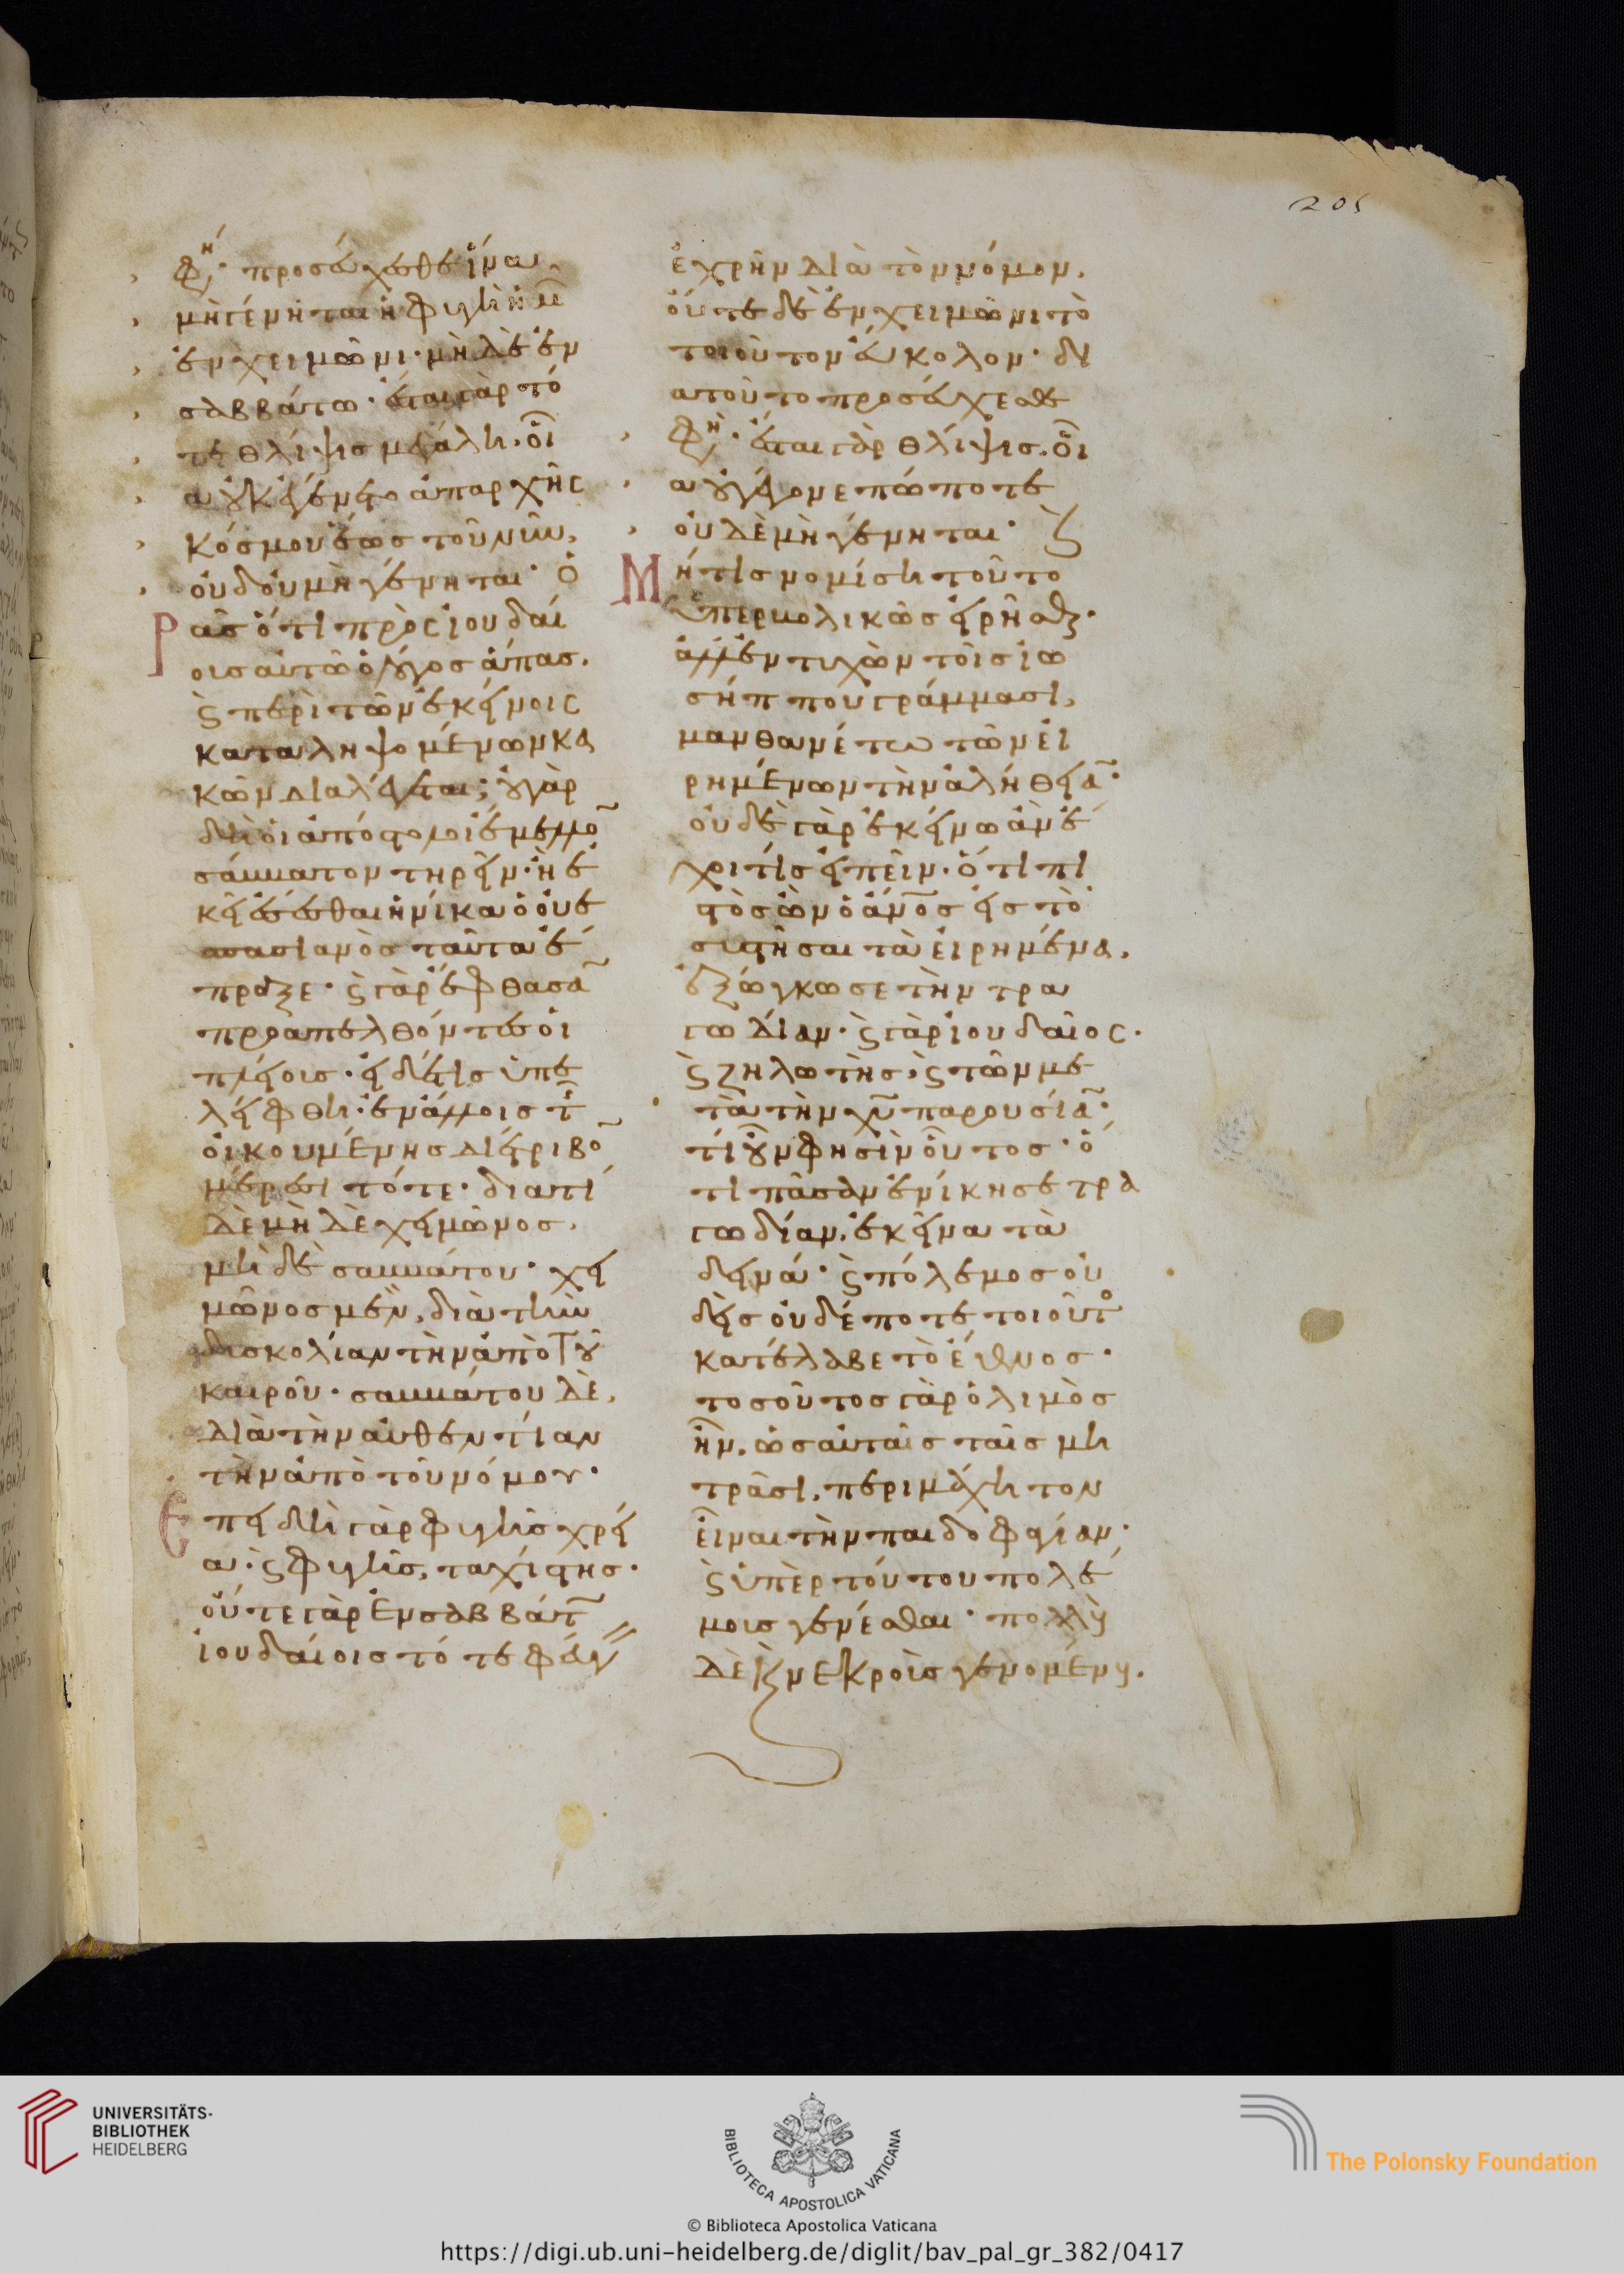 φη· προσεύχεσθε ἵνα
μὴ γένηται ἡ φυγὴ ὑμ
ἐν χειμῶνι· μὴ δὲ ἐν
σαββάτω· ἔσται γὰρ τό
τε θλίψις μεγάλη· οἵα
οὐκ ἐγένετο ἀπαρχῆς
κόσμου ἕως τοῦ νῦν,
οὐδ οὐ μὴ γένηται· ὁ
ρᾶς ὅτι πρὸς ἰουδαί
οις αὐτῶ ὁ λόγος ἅπας.
ϛ περὶ τῶν ἐκείνοις
καταληψομένων κα
κῶν διαλέγεται; οὐ γὰρ
δὴ οἱ ἀπόστολοι ἔμελλο̄
σάββατον τηρεῖν· ἢ ἐ
κεῖ ἔσεσθαι ἡνίκα ὁ οὐε
σπασιανὸς ταῦτα ἔ
πραξε· ϛ γὰρ ἔφθασᾱ
προαπελθόντες οἱ
πλείους· εἰ δέ τις ὑπε
λείφθη· ἐν ἄλλοις τ
οἰκουμένης διέτριβο̄
μέρεσι τότε· διατί
δὲ μὴ δὲ χειμῶνος,
μὴ δὲ σαββάτου· χει
μῶνος μὲν, διὰ τὴν
δυσκολίαν τὴν ἀπὸ τοῦ
καιροῦ· σαββάτου δὲ,
διὰ τὴν αὐθεντίαν
τὴν ἀπὸ τοῦ νόμου·
Ἐπειδὴ γὰρ φυγῆς χρεί
α· ϛ φυγῆς, ταχίστης·
οὔτε γὰρ ἐν σαββάτ
ἰουδαίοις τότε φεύγειν
205
ἐχρῆν διὰ τὸν νόμον,
οὔτε δὲ ἐν χειμῶνι τὸ
τοιοῦτον εὔκολον· δι
ατοῦτο προσεύχεσθε
φη· ἔσται γὰρ θλίψις, οἵα
οὐ γέγονε πώποτε
οὐ δὲ μὴ γένηται· ϛ
Μήτις νομίση τοῦτο
ὑπερβολικῶς εἰρῆσθαι·
ἀλλ ἐντυχὼν τοῖς ἰω
σήππου γράμμασι,
μανθανέτω τῶν εἰ
ρημένων τὴν ἀλήθειᾱ·
οὐδὲ γὰρ ἐκεῖνο ἂν ἔ
χοι τίς εἰπεῖν· ὅτι πι
στὸς ὢν ὁ ἄνος εἰς τὸ
συστῆσαι τὰ εἰρημένα,
ἐξώγκωσε τὴν τρα
γωδίαν· ϛ γὰρ ἰουδαῖος·
ϛ ζηλωτὴς· ϛ τῶν με
τὰ τὴν χῦ παρουσίᾱ·
τί οὖν φησὶν οὗτος· ὅ
τι πᾶσαν ἐνίκησε τρα
γωδίαν, ἐκεῖνα τὰ
δεινά· ϛ πόλεμος οὐ
δεὶς οὐδέποτε τοιοῦτο
κατέλαβε τὸ ἔθνος·
τοσοῦτος γὰρ ὁ λιμὸς
ἦν, ὡς αὐταῖς ταῖς μη
τράσι, περιμάχητον
εἶναι τὴν παιδοφαγίαν·
ϛ ὑπὲρ τούτου πολέ
μους γενέσθαι· πολλοὺ
δὲ ϗ νεκροῖς γενομένου.
UNIVERSITÄTS-
BIBLIOTHEK
HEIDELBERG
BIBLIOTECA APOSTOLICA VATICANA
The Polonsky Foundation
© Biblioteca Apostolica Vaticana
https://digi.ub.uni-heidelberg.de/diglit/bav_pal_gr_382/0417